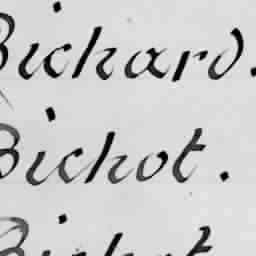 Bichard.
Bichot.